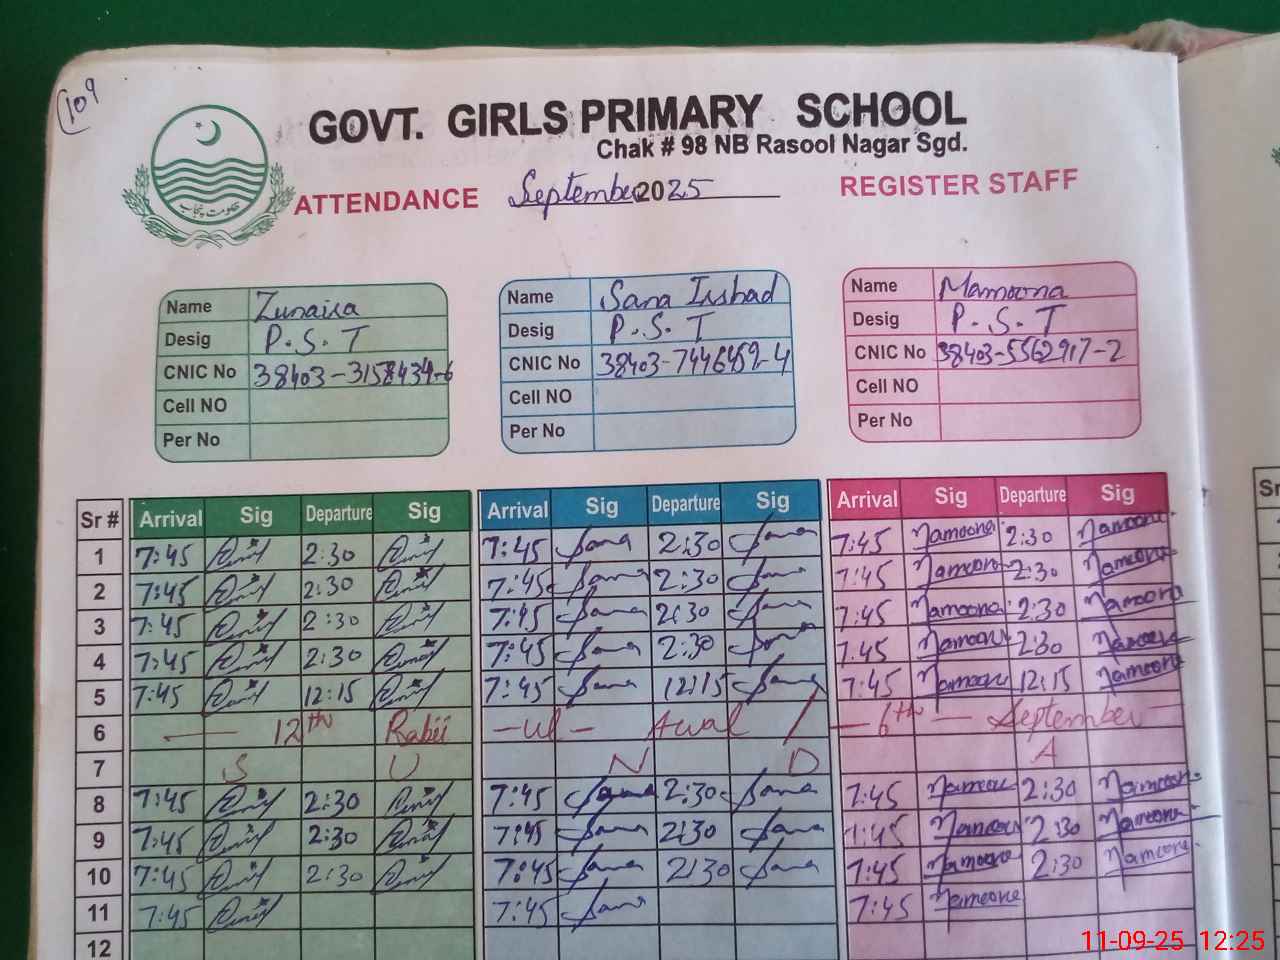 109
GOVT. GIRLS PRIMARY SCHOOL
Chak # 98 NB Rasool Nagar Sgd.
ATTENDANCE September 2025 REGISTER STAFF
حکومت پنجاب
Name Zunaira
Desig P.S.T
CNIC No 38403-3158434-6
Cell NO
Per No
Name Sana Irshad
Desig P.S.T
CNIC No 38403-7446459-4
Cell NO
Per No
Name Mamoona
Desig P.S.T
CNIC No 38403-5562917-2
Cell NO
Per No
Sr # Arrival Sig Departure Sig Arrival Sig Departure Sig Arrival Sig Departure Sig
1 7:45 2:30 7:45 Sana 2:30 Sana 7:45 Mamoona 2:30 Mamoona
2 7:45 2:30 7:45 Sana 2:30 Sana 7:45 Mamoona 2:30 Mamoona
3 7:45 2:30 7:45 Sana 2:30 Sana 7:45 Mamoona 2:30 Mamoona
4 7:45 2:30 7:45 Sana 2:30 Sana 7:45 Mamoona 2:30 Mamoona
5 7:45 12:15 7:45 Sana 12:15 Sana 7:45 Mamoona 12:15 Mamoona
6 — 12th Rabii -ul- Awal / — 6th — September —
7 S U N D A
8 7:45 2:30 7:45 Sana 2:30 Sana 7:45 Mamoona 2:30 Mamoona
9 7:45 2:30 7:45 Sana 2:30 Sana 7:45 Mamoona 2:30 Mamoona
10 7:45 2:30 7:45 Sana 2:30 Sana 7:45 Mamoona 2:30 Mamoona
11 7:45 7:45 Sana 7:45 Mamoona
12
Sr
11-09-25 12:25